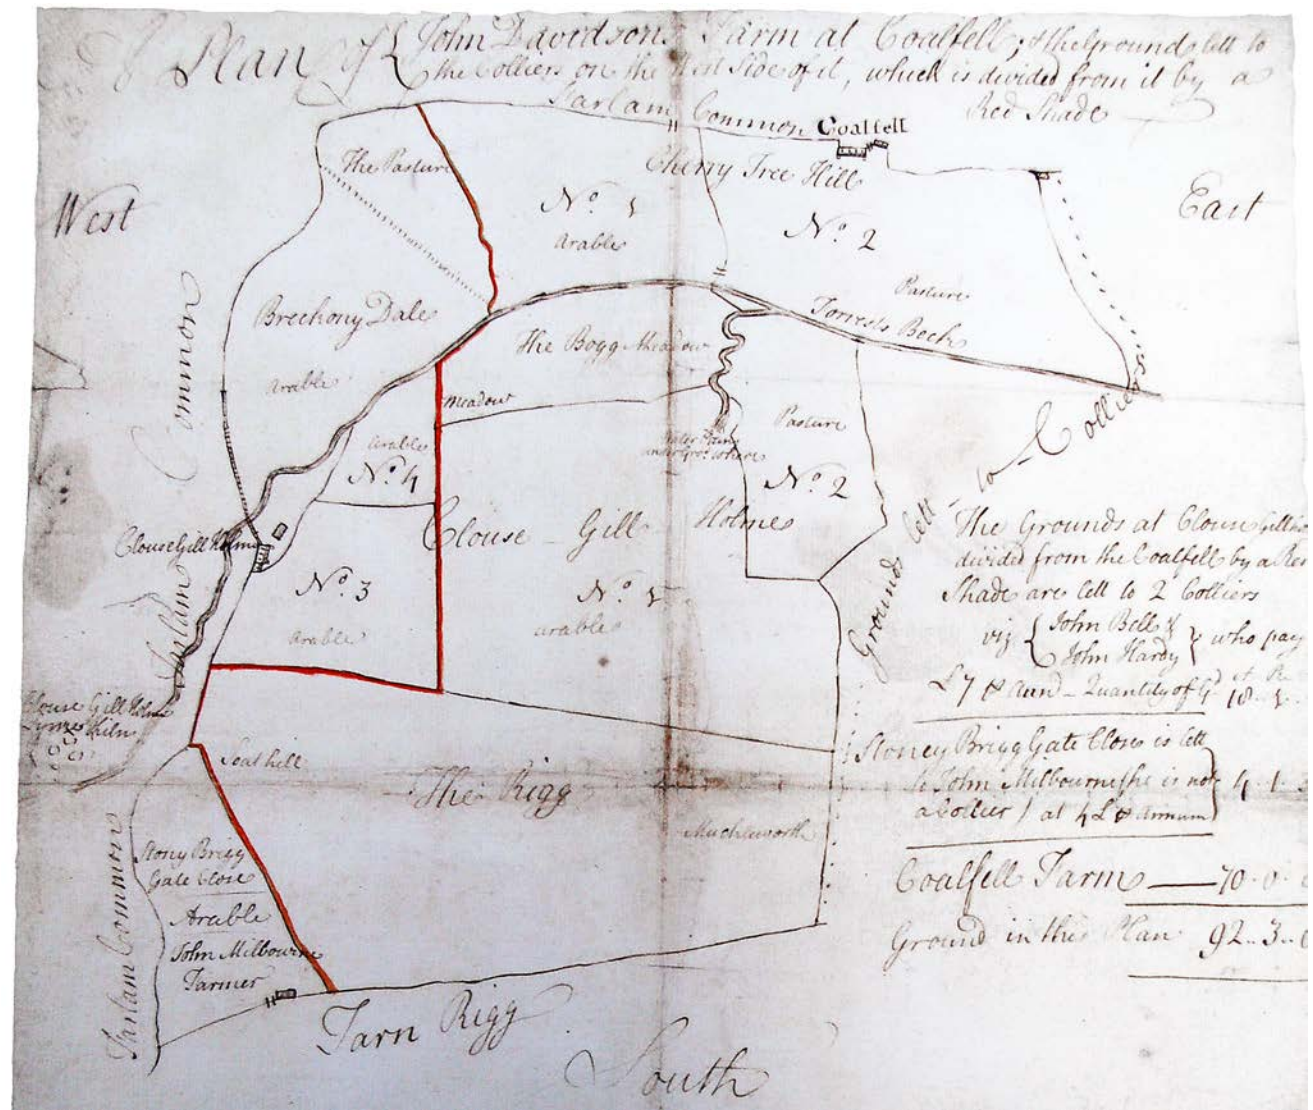 A Plan of { John Davidsons Farm at Coalfell; & the Ground lett to
the Colliers on the West Side of it, which is divided from it by a
Red Shade
Tarlam Common
Coalfell
Cherry Tree Hill
The Pasture
West
East
No. 1
arable
No. 2
Pasture
Forrests Beck
Brechony Dale
arable
The Bogg Meadow
Meadow
Common
Tarlam
arable
No. 4
Pasture
No. 2
Water
under Gro. where
Clouse Gill Holme
Clouse Gill Holmes
No. 3
arable
No. 1
arable
Ground lett to Colliers
Clouse Gill Holme
Lyme Kiln
Seat hill
The Rigg
Muckleworth
Stony Brigg
Gate Close
Arable
John Milbourne
Farmer
Tarlam Common
Tarn Rigg
South
The Grounds at Clouse Gill
divided from the Coalfell by a Red
Shade are lett to 2 Colliers
viz { John Bell &
John Hardy } who pay
£7 Annd - Quantity of Gd 18 - 1 -
Stoney Brigg Gate Close is lett
to John Milbourne (he is not
a Collier) at 4 £ Annum 4 - 1 -
Coalfell Farm — 70 - 0 -
Ground in this Plan 92 - 3 - 0